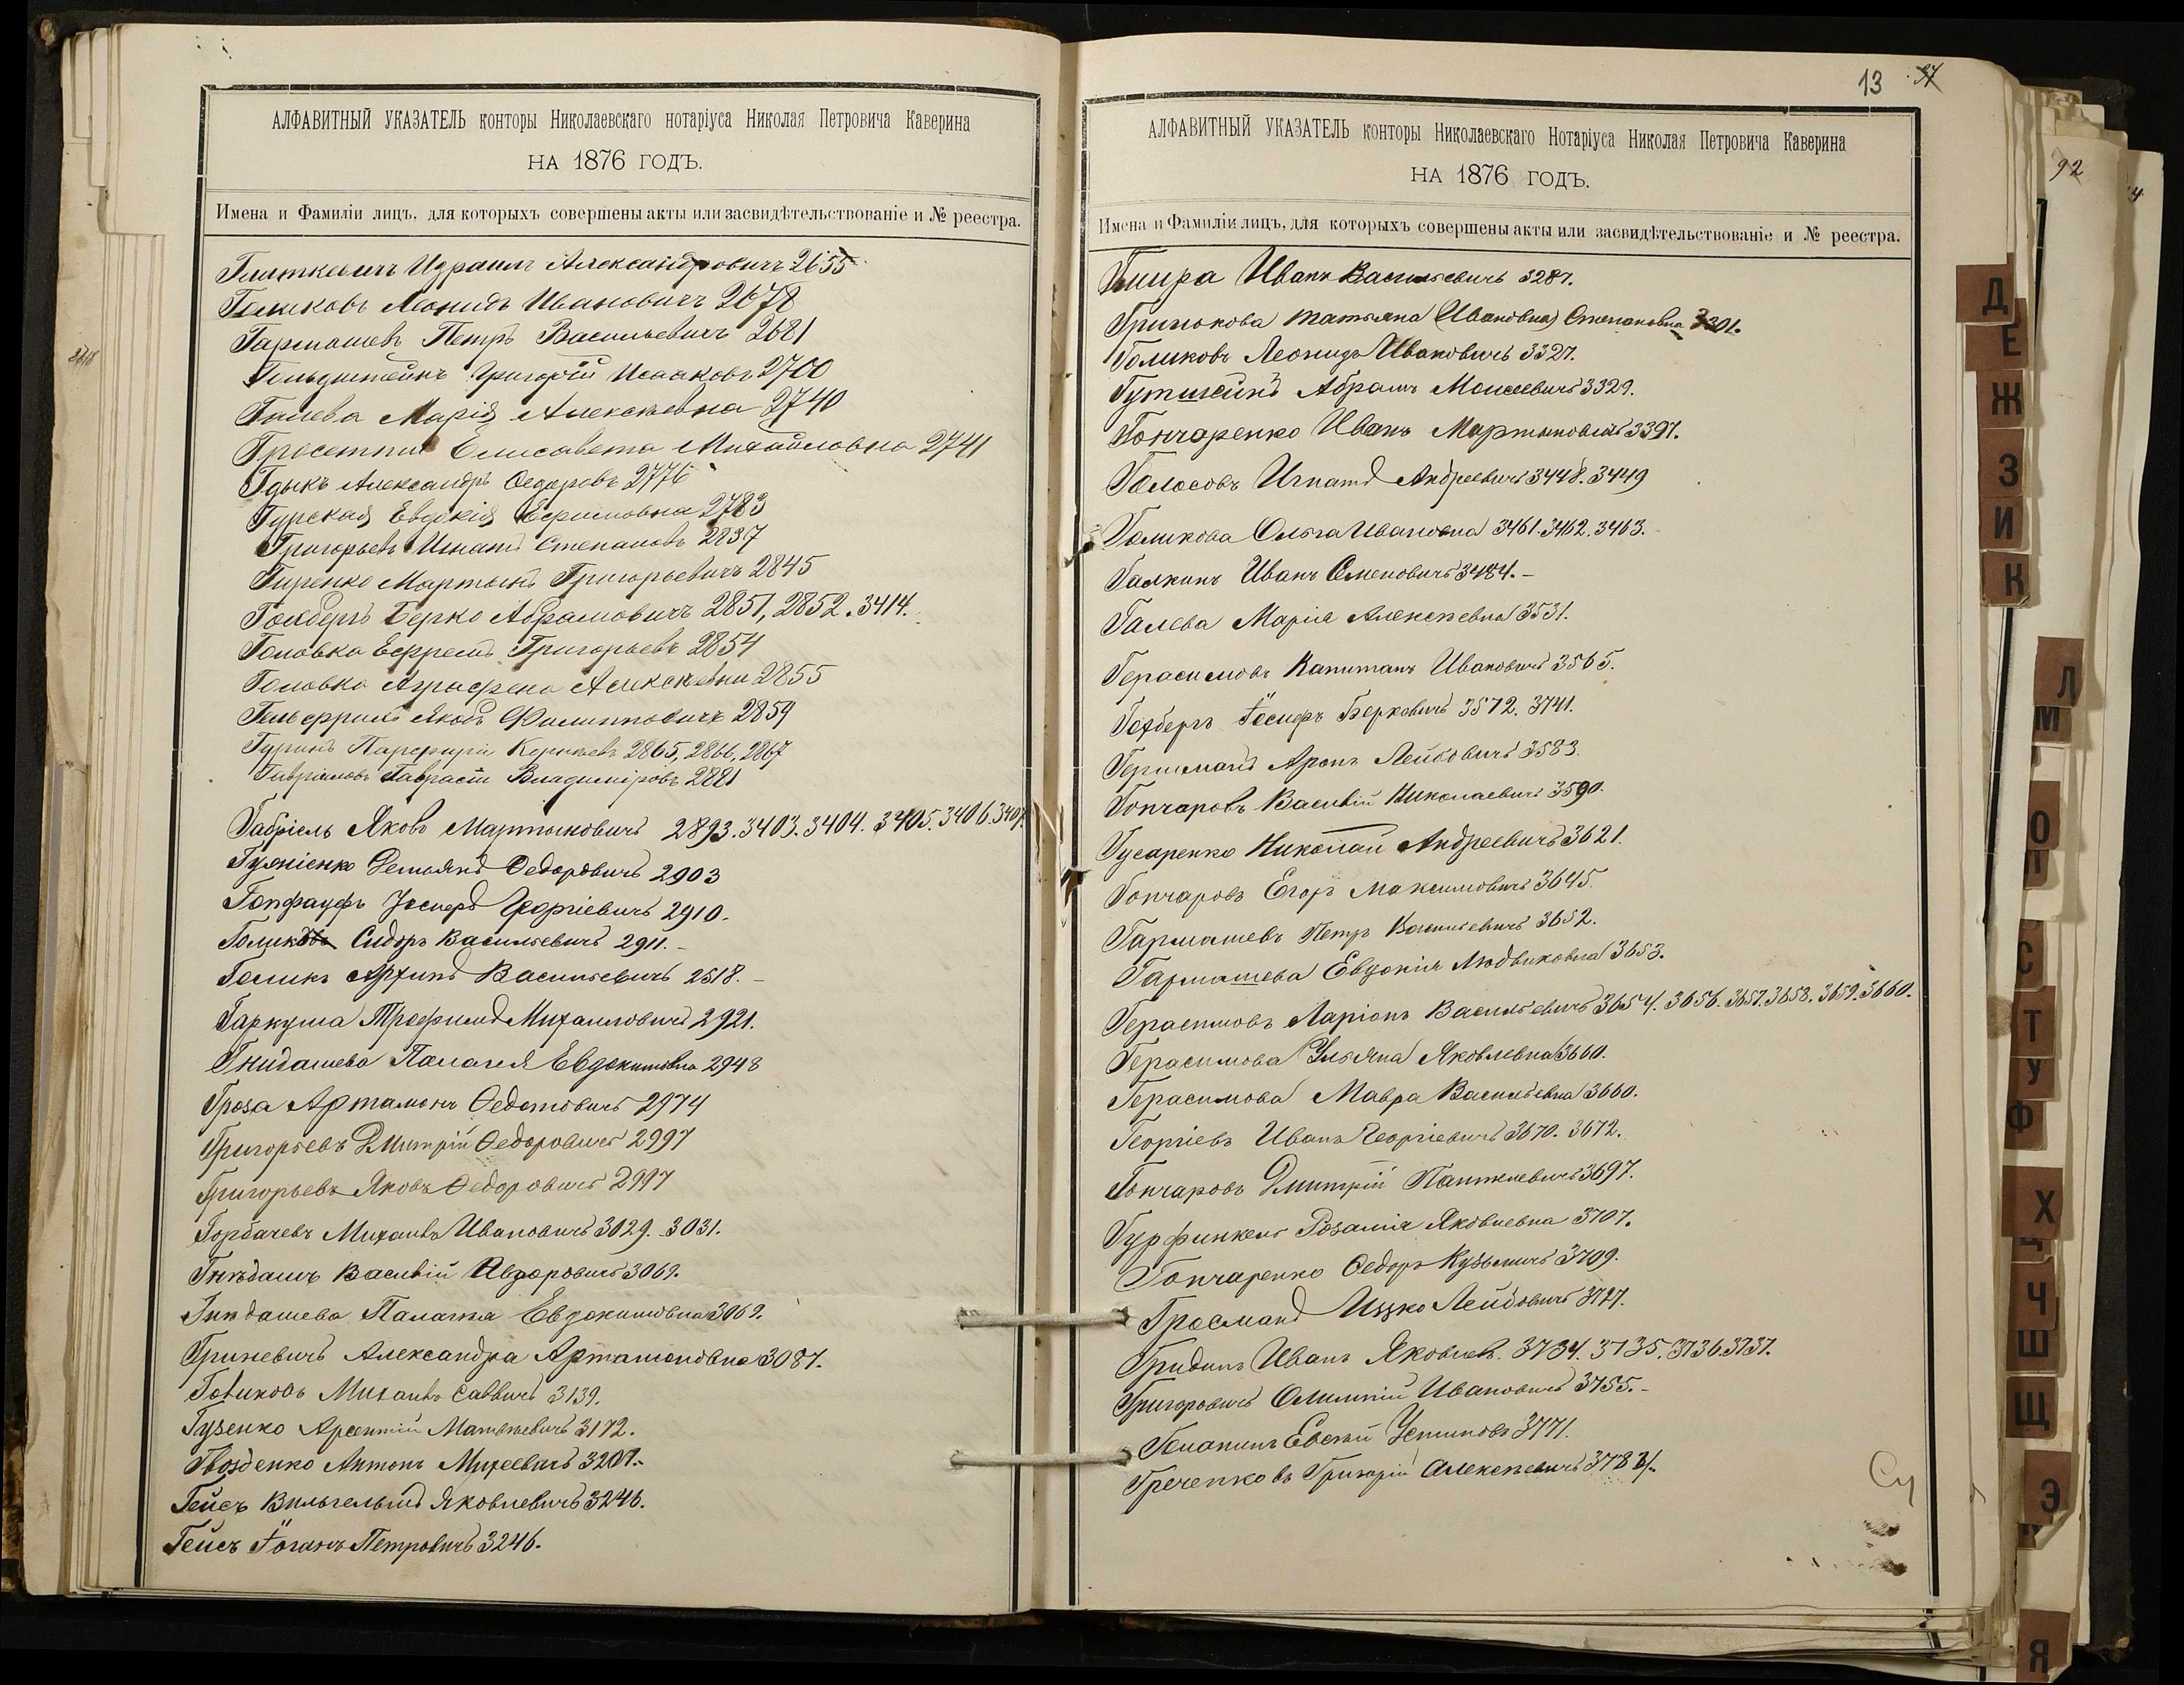 АЛФАВИТНЫЙ УКАЗАТЕЛЬ конторы Николаевскаго нотаріуса Николая Петровича Каверина
НА 1876 ГОДЪ.
Имена и Фамиліи лицъ, для которыхъ совершены акты или засвидѣтельствованіе и № реестра.
Израиль Александровичъ 2655
Голиковъ Леонидъ Ивановичъ 2678
Гармашевъ Петръ Васильевичъ 2681
Гольдштейнъ Григорій Исааковъ 2700
Галева Марія Алексѣевна 2740
Елисавета Михайловна 2741
Гдыкъ Александръ Ѳедоровъ 2776
Гурская Евдокія Ефимовна 2783
Григорьевъ Игнатъ Степановъ 2837
Гиренко Мартынъ Григорьевичъ 2845
Гохбергъ Берко Абрамовичъ 2851, 2852. 3414.
Головко Ефремъ Григорьевъ 2854
Головко Аграфена Алексѣевни 2855
Яковъ Филипповичъ 2859
Гуринъ Парфирій Корнѣевъ 2865, 2866, 2867
Гавріловъ Владиміровъ 2881
Габріель Яковъ Мартыновичъ 2893. 3403. 3404. 3405. 3406. 3407.
Демьянъ Ѳедоровичъ 2903
Гопфауфъ Іосифъ Георгіевичъ 2910.
Голиковъ Сидоръ Васильевичъ 2911.-
Голикъ Архипъ Васильевичъ 2518.-
Гаркуша Трофимъ Михаиловичъ 2921.
Гнидашева Палагея Евдокимовна 2948
Гроза Артамонъ Ѳедотовичъ 2974
Григорьевъ Дмитрій Ѳедоровичъ 2997
Григорьевъ Яковъ Ѳедоровичъ 2997
Горбачевъ Михаилъ Ивановичъ 3029. 3031.
Гнѣдашъ Василій 3069.
Гнѣдашева Палагѣя Евдокимовна 3069.
Гриневичъ Александра Артамоновна 3087.
Говиковъ Михаилъ Саввичъ 3139.
Гузенко Арсентій Матвѣевичъ 3172.
Гвозденко Антонъ Михеевичъ 3207.-
Гейсъ Вильгельмъ Яковлевичъ 3246.
Гейсъ Іоганъ Петровичъ 3246.
13 97
АЛФАВИТНЫЙ УКАЗАТЕЛЬ конторы Николаевскаго Нотаріуса Николая Петровича Каверина
НА 1876 ГОДЪ.
Имена и Фамиліи лицъ, для которыхъ совершены акты или засвидѣтельствованіе и № реестра.
Гмира Иванъ Васильевичъ 3287.
Гринокова Татьяна (Ивановна) Степановна 3301.
Голиковъ Леонидъ Ивановичъ 3327.
Гутшейнъ Абрамъ Моисеевичъ 3329.
Гончаренко Иванъ Мартыновичъ 3397.
Голосовъ Игнатъ Андреевичъ 3448. 3449
Голикова Ольга Ивановна 3461. 3462. 3463.
Галкинъ Иванъ Семеновичъ 3484.-
Галева Марія Алексѣевна 3531.
Герасимовъ Капитанъ Ивановичъ 3565.
Гохбергъ Іосифъ Берковичъ 3572. 3741.
Гершманъ Аронъ Лейбовичъ 3583.
Гончаровъ Василій Николаевичъ 3590.
Гусаренко Николай Андреевичъ 3621.
Гончаровъ Егоръ Максимовичъ 3645.
Гармашевъ Петръ Васильевичъ 3652.
Гармашева Евдокія Людвиковна 3653.
Герасимовъ Ларіонъ Васильевичъ 3654. 3656. 3657. 3658. 3659. 3660.
Герасимова Ульяна Яковлевна 3660.
Герасимова Мавра Васильевна 3660.
Георгіевъ Иванъ Георгіевичъ 3670. 3672.
Гончаровъ Дмитрій Пантелевичъ 3697.
Гурфинкель Розалія Яковлевна 3707.
Гончаренко Ѳедоръ Кузьмичъ 3709.
Гросманъ Ицко Лейбовичъ 3727.
Гридинъ Иванъ Яковлев. 3734. 3735. 3736. 3737.
Григоровичъ Олимпій Ивановичъ 3755.-
Евсѣй Устиновъ 3771.
Греченковъ Григорій Алексѣевичъ 3783/.
92
Д
Е
Ж
З
И
К
Л
М
О
П
С
Т
У
Ф
Х
Ц
Ч
Ш
Щ
Э
Я